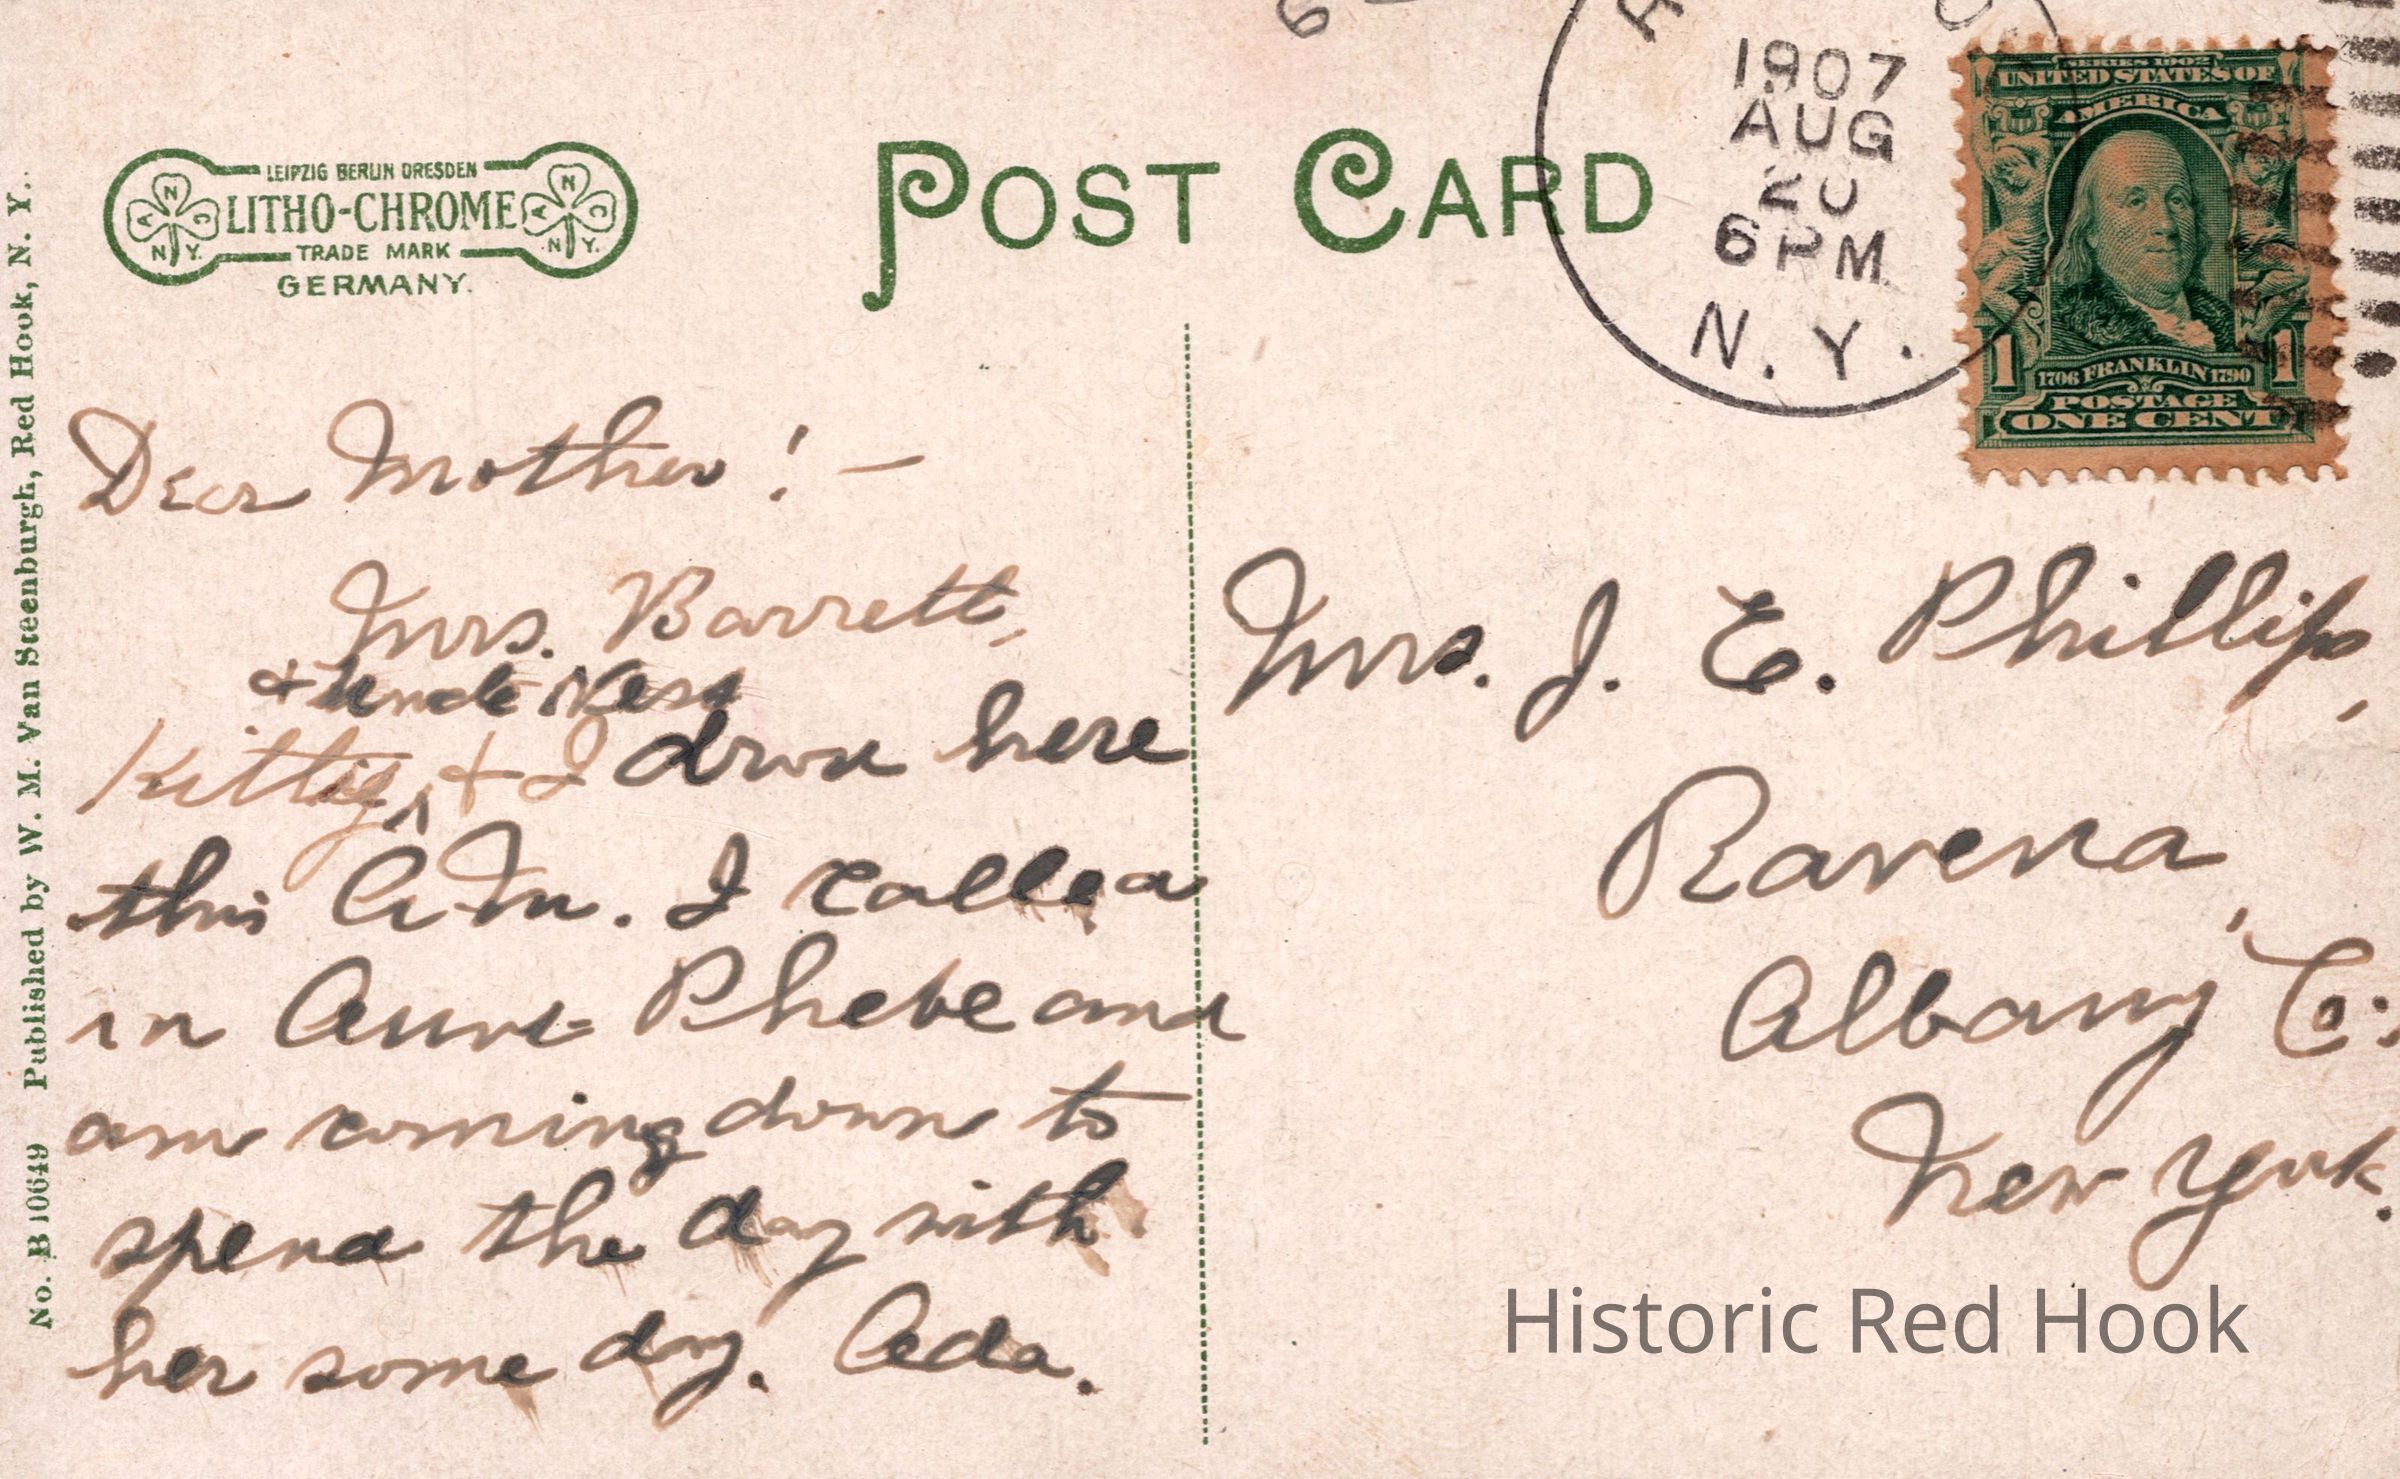 LEIPZIG BERLIN DRESDEN
LITHO-CHROME
TRADE MARK
GERMANY.
A N C
N. Y.
A N C
N. Y.
POST CARD
1907
AUG
20
6 PM
N. Y.
SERIES 1902
UNITED STATES OF
AMERICA
1 1
1706 FRANKLIN 1790
POSTAGE
ONE CENT
No. B 10649 Published by W. M. Van Steenburgh, Red Hook, N. Y.
Dear Mother! —
Mrs. Barrett,
& Uncle Ness
Kittie, ^ & I drove here
this A. M. I called
in Aunt Phebe and
am coming down to
spend the day with
her some day. Ada.
Mrs. J. E. Phillips,
Ravena,
Albany Co.
New York.
Historic Red Hook